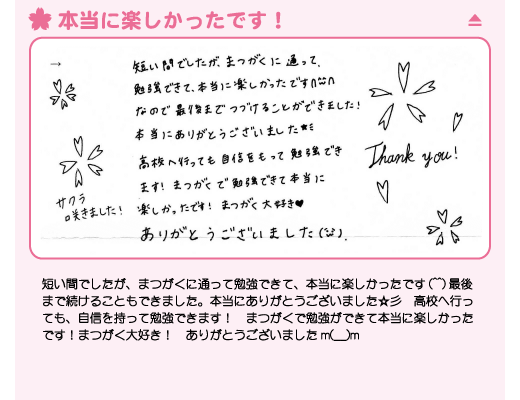 本当に楽しかったです！
→
短い間でしたが、まつがくに通って、
勉強できて、本当に楽しかったです
なので最後までつづけることができました！
本当にありがとうございました☆彡
高校へ行っても自信をもって勉強でき
ます! まつがくで勉強できて本当に
楽しかったです! まつがく大好き♥
ありがとうございました( ).
Thank you!
サクラ
咲きました!
短い間でしたが、まつがくに通って勉強できて、本当に楽しかったです(^^)最後
まで続けることもできました。本当にありがとうございました☆彡　高校へ行っ
ても、自信を持って勉強できます！　まつがくで勉強ができて本当に楽しかった
です！まつがく大好き！　ありがとうございましたm(__)m